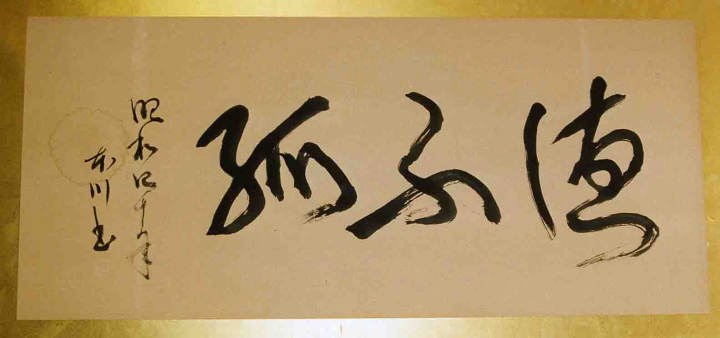 徳不孤
昭和四十年
東川書